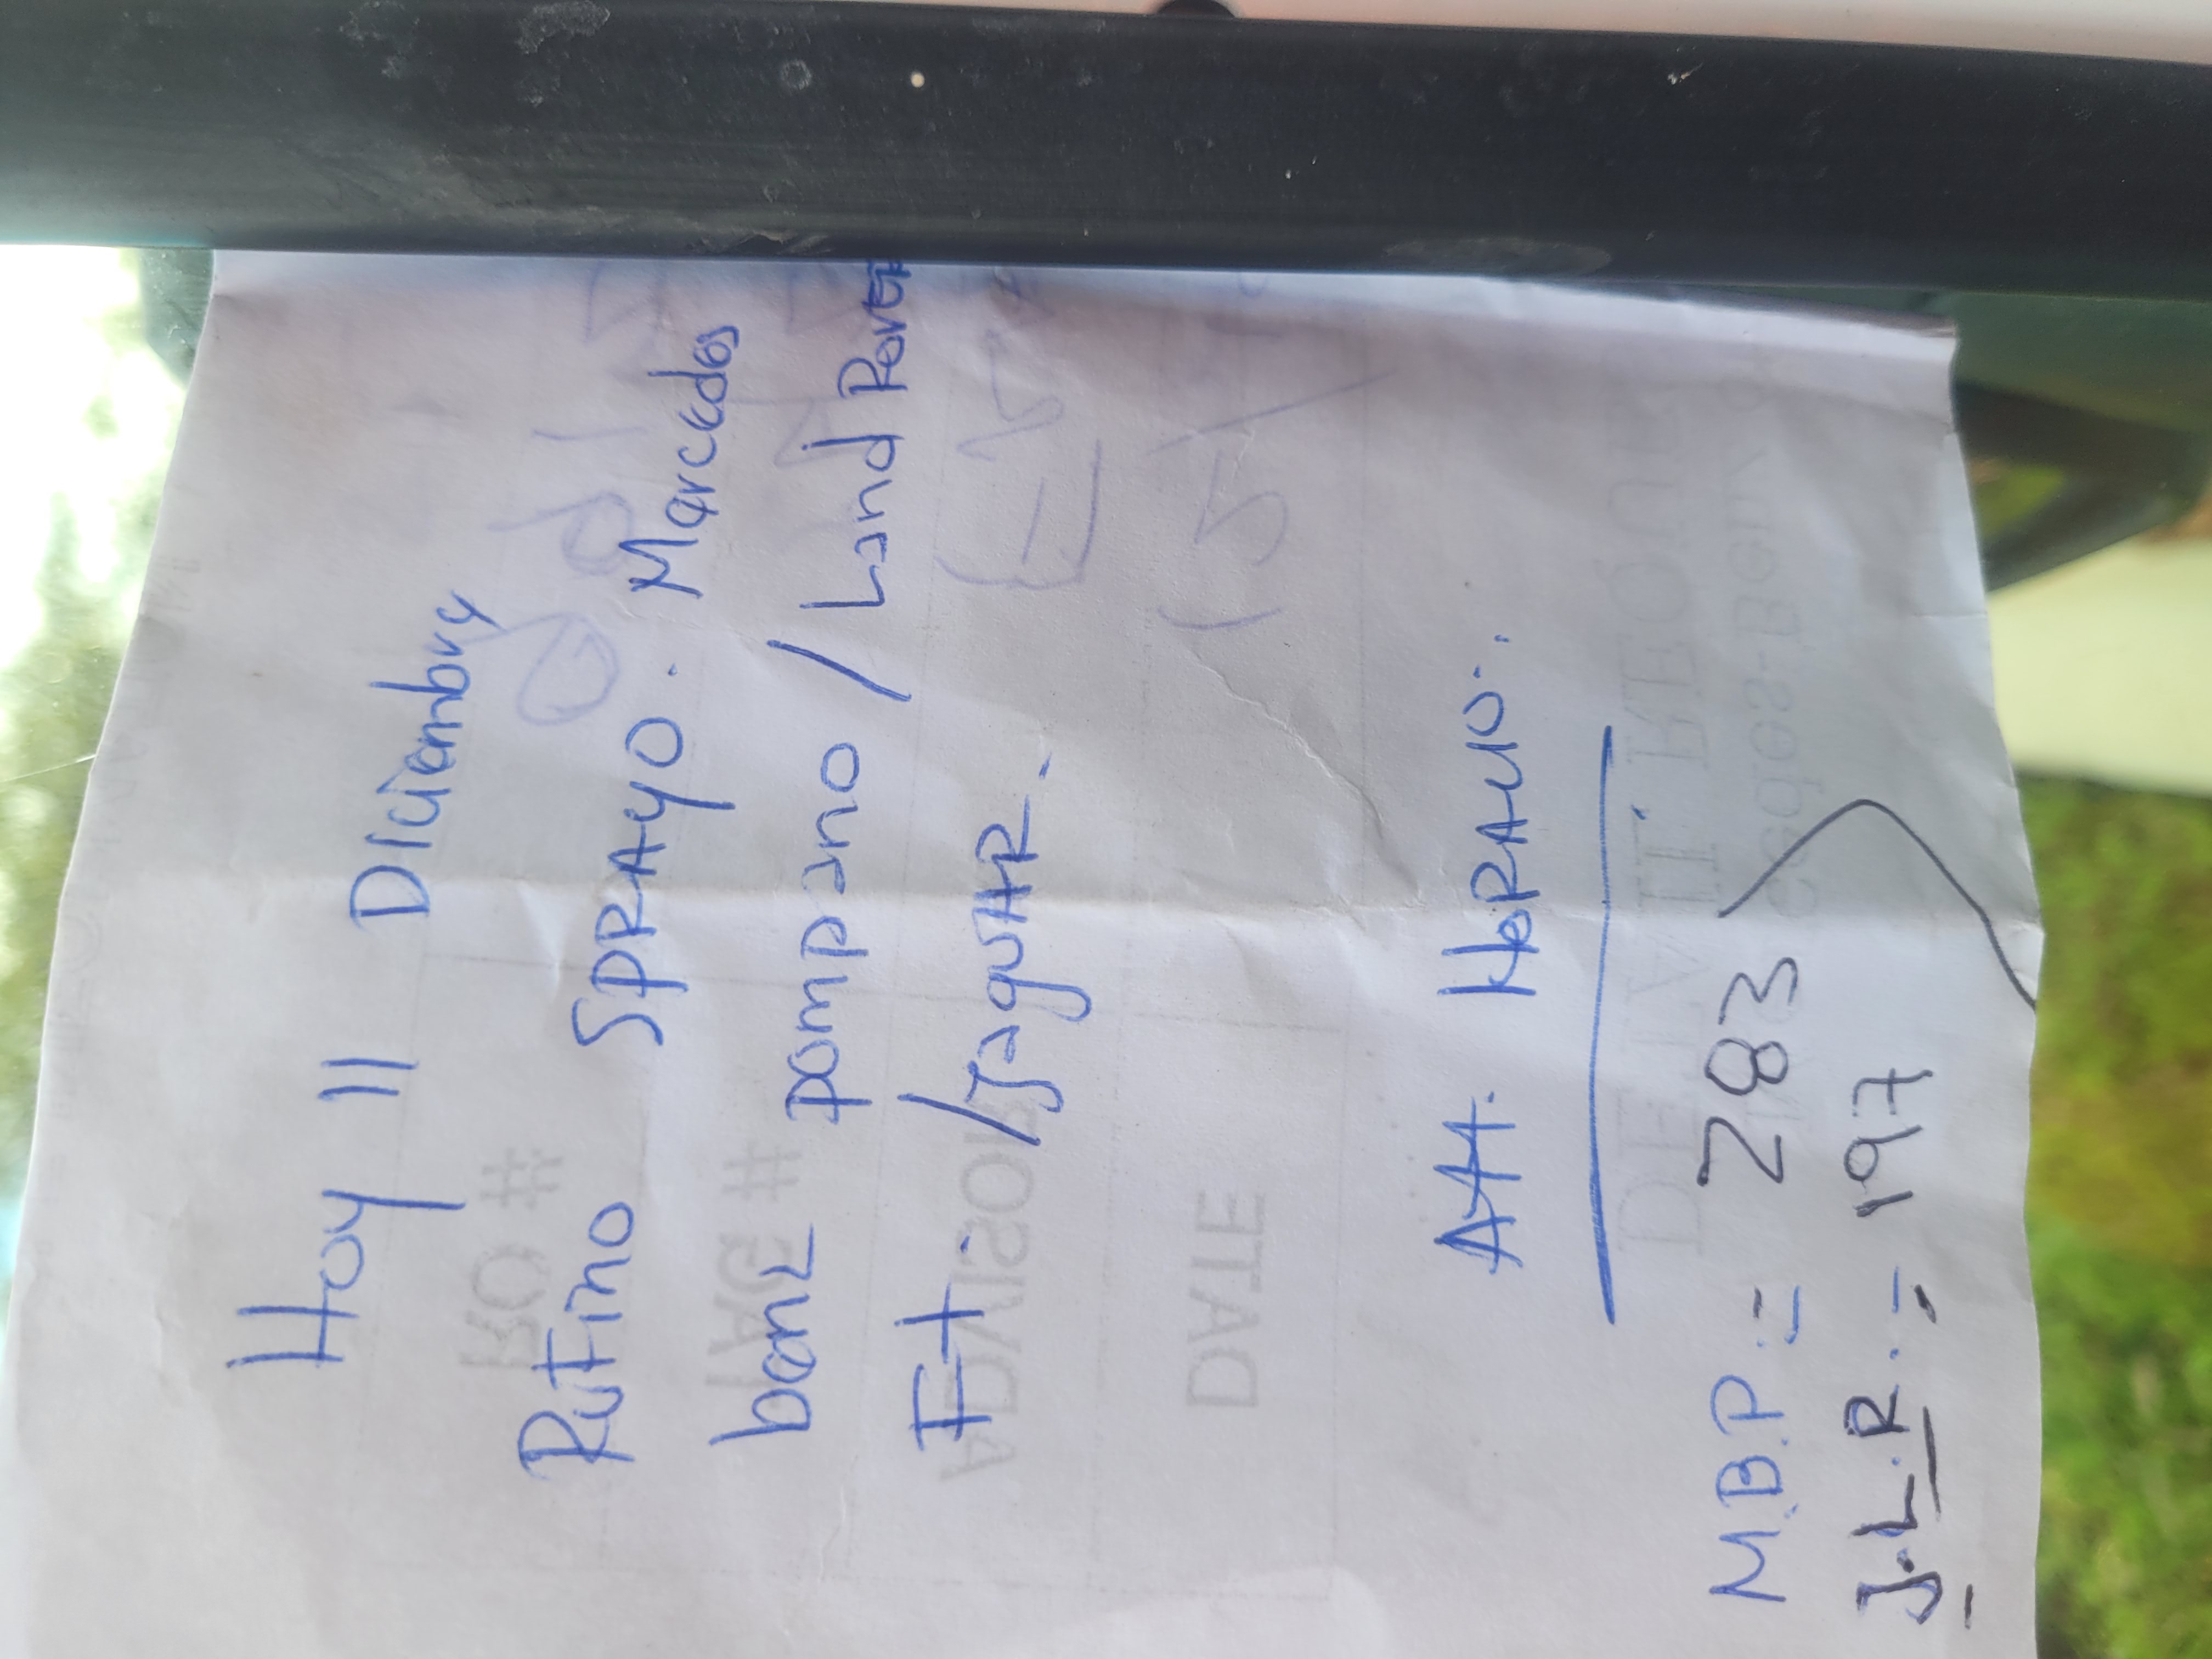 Hoy 11 Diciembre
Rufino SPRAYO. Mercedes
benz pompano / Land Rover
Ft. / JaguAR.
Att. HoRAcio..
M.B.P. = 283
J.L.R. = 197
RO #
TAG #
ADVISOR
DATE